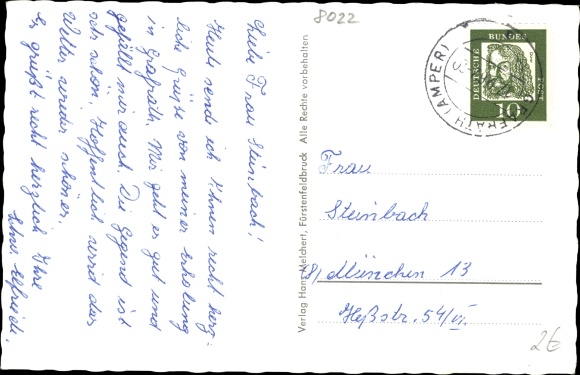 Liebe Frau Steinbach!
Heute send ich Ihnen recht herz-
liche Grüße von meiner Erholung
in Grafrath. Mir geht es gut und
gefällt mir auch. Die Gegend ist
sehr schön. Hoffentlich wird das
Wetter wieder schöner.
Es grüßt recht herzlich Ihre
8022
Verlag Hans Melchert, Fürstenfeldbruck Alle Rechte vorbehalten
DEUTSCHE BUNDESPOST
10
GRAFRATH (AMPER)
Frau
Steinbach
(8) München 13
Heßstr. 54/VI.
2€